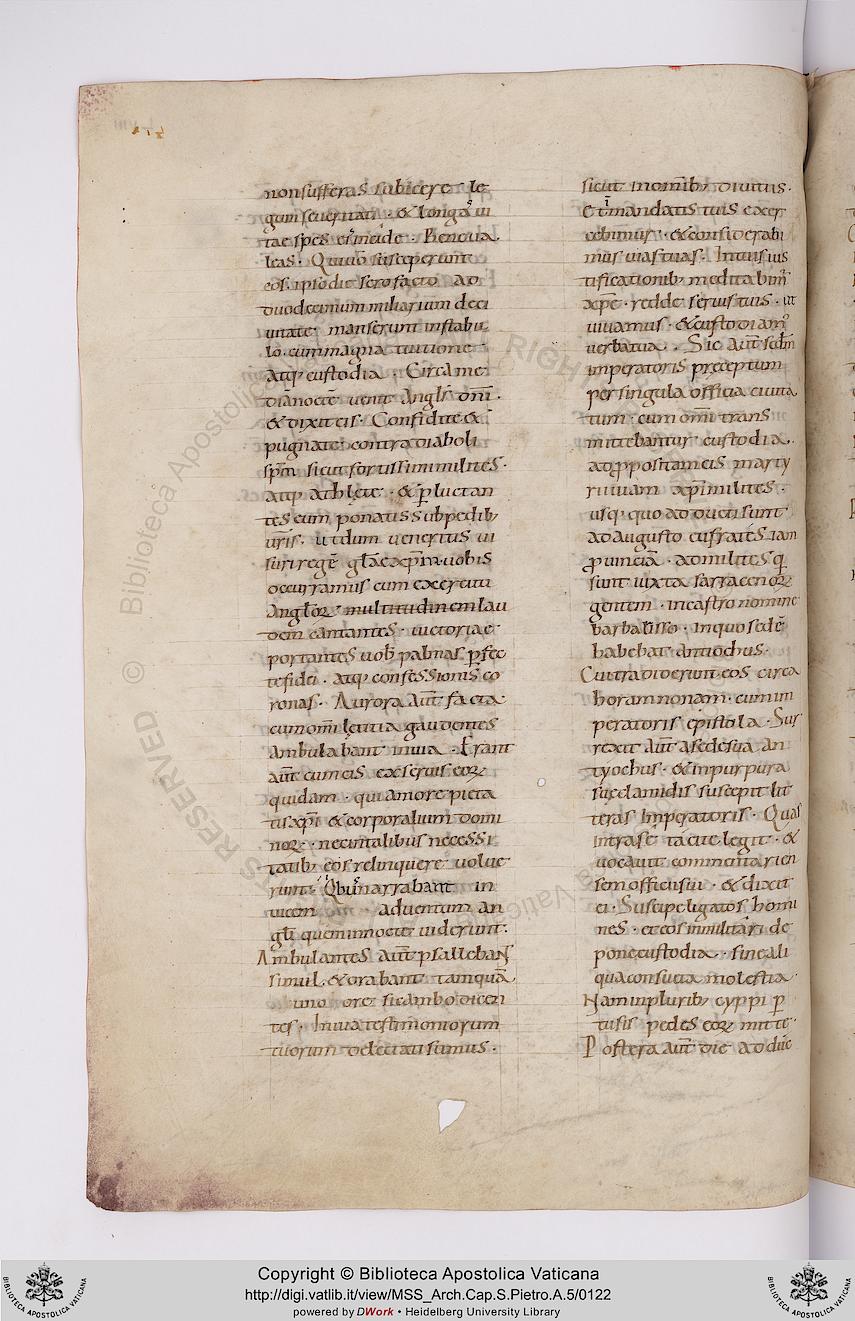 non sufferas subicere le
gum seueritati · & longa ui
tae spes ei incide · Beneua
leas · Quiuō susceperunt
eos · ipso die sero facto · ad
duodecimum miliarium deci
uitate · manserunt in stabu
lo · cum magna tuitione ·
atq; custodia · Circa me
diānoctē uenit angls dnī ·
& dixit eis · Confidite &
pugnate contra diaboli
spm̄ sicut fortissimi milites ·
atq; athlete · & pluctan
tes eum ponatis sub pedib;
uris · ut dum ueneritis ui
suri regē
occurramus cum exercitu
multitudinem lau
dem cantantes · uictoriae
portantes uob palmas pfec
te fidei · atq; confessionis co
ronas · Aurora aut̄ facta
cum omī letitia gaudentes
ambulabant in uia · Erant
aut̄ cum eis ex seruis eoꝝ
quidam · qui amore pieta
tis xp̄i & corporalium domi
noꝝ · nec in talibus necessi
tatib; eos relinquere uolue
runt · narrabant in
uicem aduentum an
gli quem in nocte uiderunt ·
Ambulantes aut̄ psalleban̄
simul · & orabant tamquā
uno ore · sic ambo dicen
tes · In uia testimoniorum
tuorum delectati sumus ·
sicut in omib; diuitiis ·
Et in mandatis tuis exer
cebimur · & considerabi
mus uias tuas · In tuis ius
tificationib; meditabim̄
xp̄e · redde seruis tuis · ut
uiuamus · & custodiam̄
uerba tua · Sic aut̄ scdm̄
imperatoris preceptum
per singula officia ciuita
tum · cum omī trans
mittebantur custodia ·
ad ppositam eis marty
rii uiam xp̄i milites ·
usq; quo adducti sunt
ad augusto eufrates iam
puinciā · ad milites q̄
sunt iuxta sarracenoꝝ
gentem · in castro nomine
barbalisso · in quo sedē
habebat antiochus ·
Cui tradiderunt eos circa
horam nonam · cum im
peratoris epistola · Sur
rexit aut̄ a sede sua an
tyochus · & in purpura
sue clamidis suscepit lit
teras imperatoris · Quas
intra se tacite legit · &
uocauit commentarien
sem officii sui · & dixit
ei · Suscipe ligatos homi
nes · et eos in militari de
pone custodia · sine ali
qua consueta molestia ·
Nam in plurib; cyppi p
tusis pedes eoꝝ mitte ·
Postera aut̄ die adduc
Copyright © Biblioteca Apostolica Vaticana
http://digi.vatlib.it/view/MSS_Arch.Cap.S.Pietro.A.5/0122
powered by DWork • Heidelberg University Library